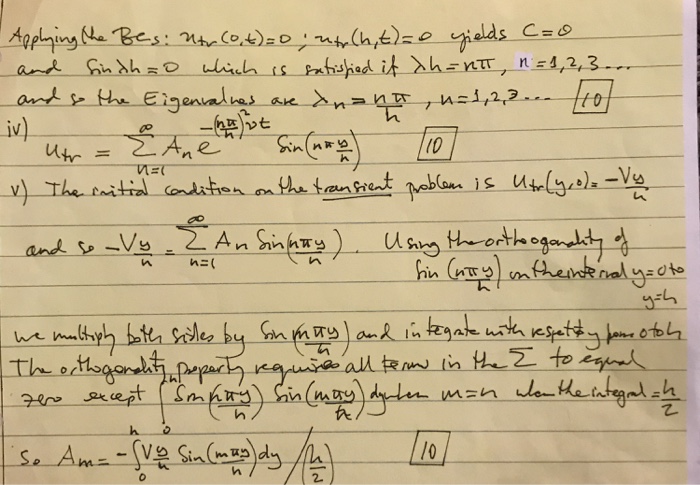 Applying the BCs: utr(0,t)=0 ; utr(h,t)=0 yields C=0
and Sin λh = 0 which is satisfied if λh = nπ, n = 1,2,3...
and so the Eigenvalues are λn = nπ/h , n=1,2,3... [10]
iv) utr = Σ_{n=1}^{∞} An e^{-(nπ/h)²νt} Sin(nπy/h) [10]
v) The initial condition on the transient problem is utr(y,0) = -Vy/h
and so -Vy/h = Σ_{n=1}^{∞} An Sin(nπy/h). Using the orthogonality of
Sin(nπy/h) on the interval y=0 to
y=h
we multiply both sides by Sin(mπy/h) and integrate with respect to y from 0 to h
The orthogonality property requires all terms in the Σ to equal
zero except ∫_0^h Sin(nπy/h) Sin(mπy/h) dy when m=n when the integral = h/2
So Am = -∫_0^h Vy/h Sin(mπy/h) dy / (h/2) [10]